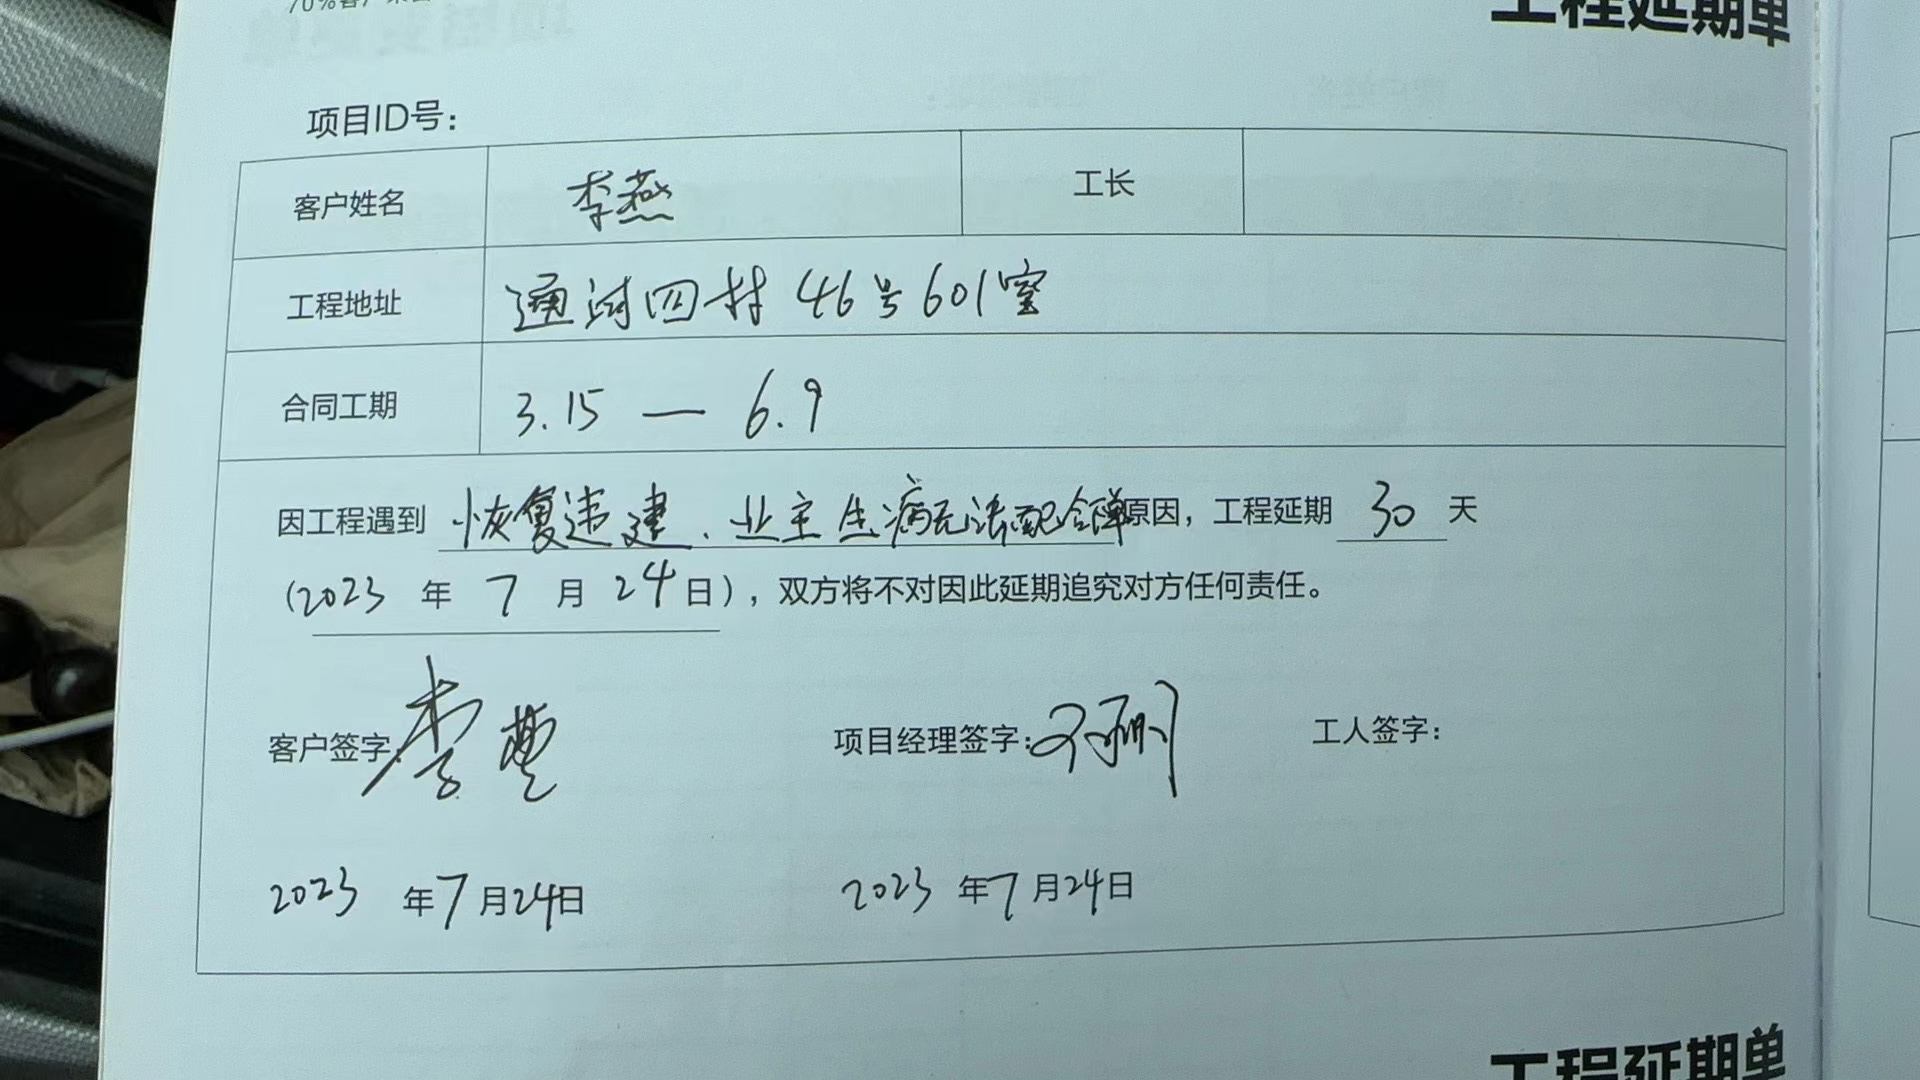 70%客户
工程延期单
项目ID号：
客户姓名 李燕 工长
工程地址 通河四村46号601室
合同工期 3.15 — 6.9
因工程遇到 恢复违建、业主生病无法配合等原因，工程延期 30 天
(2023 年 7 月 24日)，双方将不对因此延期追究对方任何责任。
客户签字: 李 项目经理签字: 工人签字:
2023 年7月24日 2023 年7月24日
工程延期单